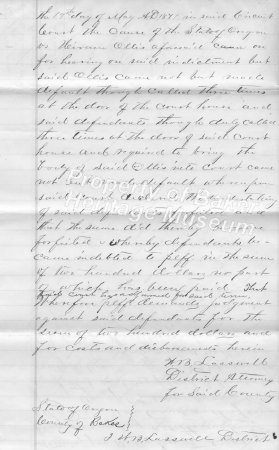 the 17th day of May A.D. 187 in said Circuit
Court the Cause of the State of Oregon
vs Hiram Ollis aforesaid came on
for hearing on said indictment but
said Ollis came not but made
default though called three times
at the door of the court house and
said defendants though duly called
three times at the door of said Court
house and required to bring the
body of said Ollis into Court came
not but made default whereupon
said
of said
that the same did thereby become
forfeited whereby defendants be-
came indebted to plff in the sum
of two hundred dollars no part
of which has been paid That
said Court has adjourned for said term.
Wherefore plff demands judgment
against said defendants for the
sum of two hundred dollars and
for costs and disbursements herein
W.B. Lasswell
District Attorney
for said County
State of Oregon }
County of Baker }
I W.B. Lasswell District
Property of Baker
Heritage Museum